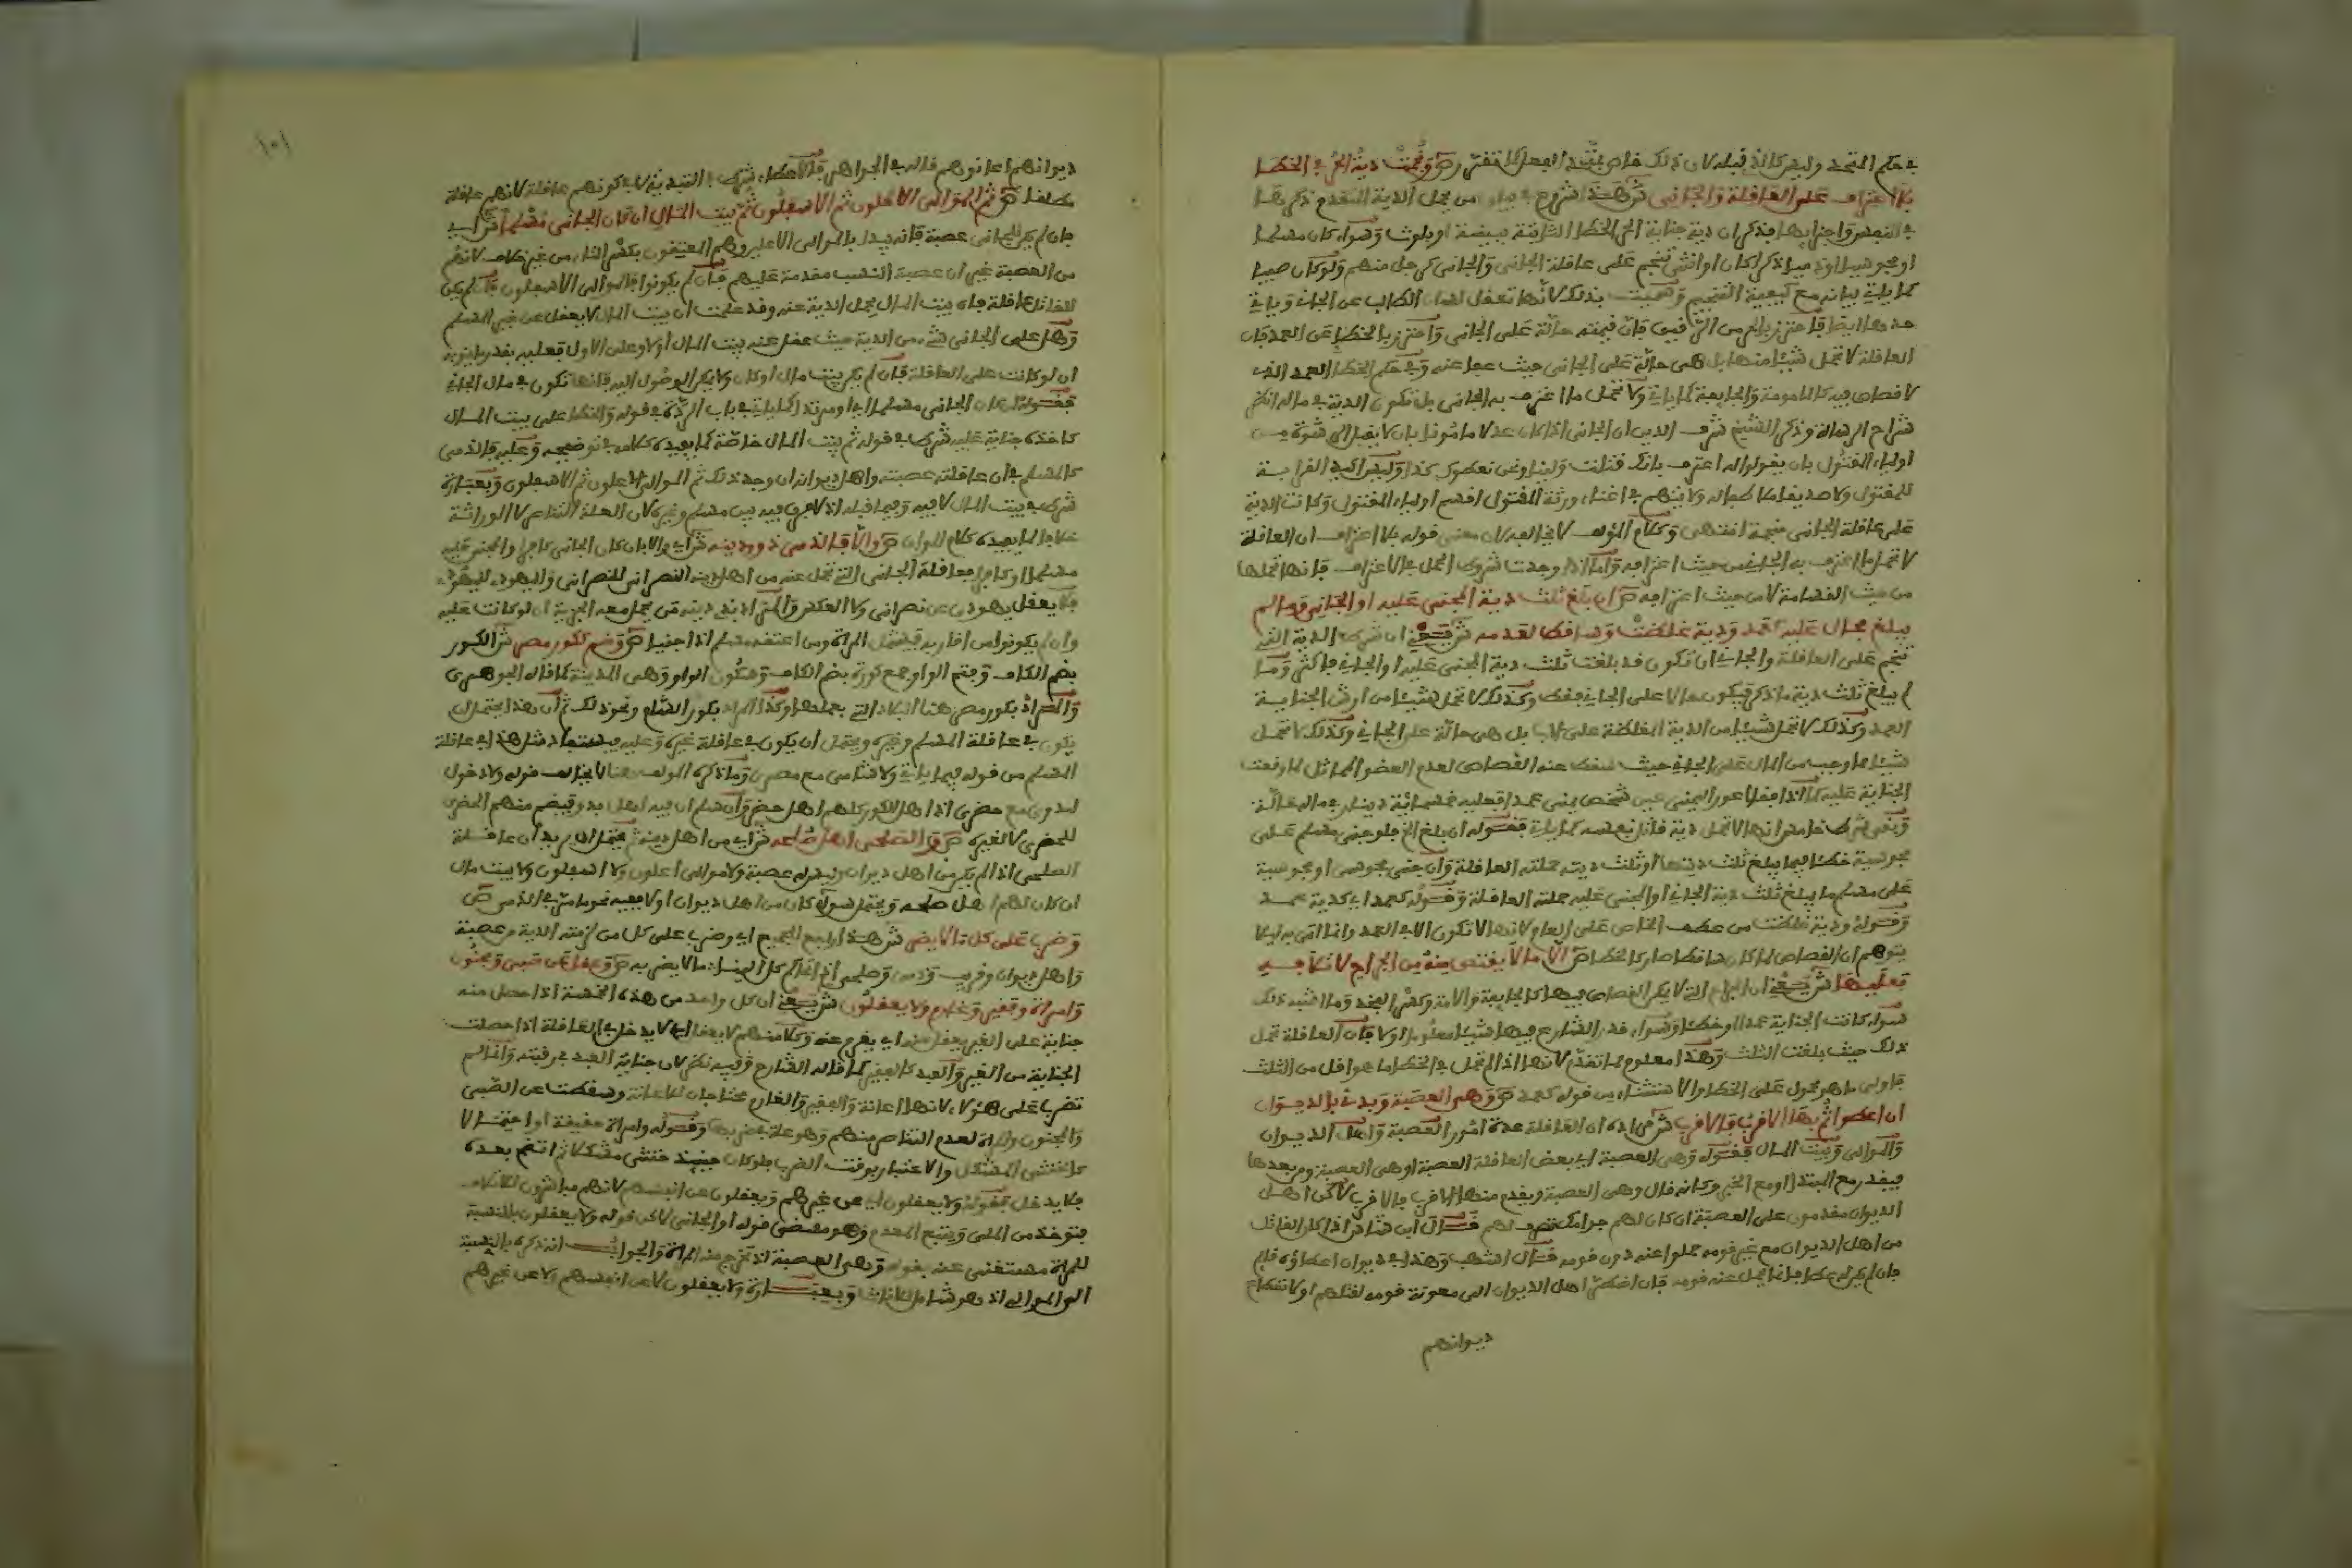 في حكم المتحد وليس كالذي قبله لان ذلك خاص بمتحد الفعل كما تقدم ص ونجمت دية الحر في الخطا
بلا اعتراف على العاقلة والجاني ش هذا شروع في بيان من يحمل الدية المتقدم ذكرها
فذكر ان دية جناية الحر الخطا الثابتة ببينة او بلوث وسواء كان مسلما
او مجوسيا او ذميا ذكرا كان او انثى تنجم على عاقلة الجاني والجاني كرجل منهم ولو كان صبيا
كما ياتي بيانه مع كيفية التنجيم وسميت بذلك لانها تعقل لسان الطالب عن الجاني وياتي
حدها ايضا فاحترز بالحر من الرقيق فان قيمته حالة على الجاني واحترز بالخطا عن العمد فان
العاقلة لا تحمل شيئا منها بل هي حالة على الجاني حيث عفا عنه وفي حكم الخطا العمد الذي
لا قصاص فيه كالمامومة والجايفة كما ياتي ولا تحمل ما اعترف به الجاني بل تكون الدية في ماله انظر
شراح الرسالة وذكر الشيخ شرف الدين ان الجاني اذا كان عدلا مامونا بان لا يقبل الرشوة من
اولياء المقتول بان يقولوا له اعترف بانك قتلت ولينا ونحن نعطوك كذا وليس اكيد القرابة
للمقتول ولا صديقا ملاطفا له ولا يتهم في اغناء ورثة المقتول اقسم اولياء المقتول وكانت الدية
على عاقلة الجاني منجمة انتهى وكلام المؤلف لا يخالفه لان معنى قوله بلا اعتراف ان العاقلة
لا تحمل ما اعترف به الجاني من حيث اعترافه واما اذا وجدت شروط الحمل في الاعتراف فانها تحملها
من حيث القسامة لا من حيث اعترافه ص ان بلغ ثلث دية المجني عليه او الجاني وما لم
يبلغ فحال عليه كعمد ودية غلظت وساقط لعدمه ش يعني ان شرط الدية التي
تنجم على العاقلة والجاني ان تكون قد بلغت ثلث دية المجني عليه او الجاني فاكثر وما
لم يبلغ ثلث دية ما ذكر فيكون حالا على الجاني فقط وكذلك لا تحمل شيئا من ارش الجناية
العمد وكذلك لا تحمل شيئا من الدية المغلظة على الاب بل هي حالة على الجاني وكذلك لا تحمل
شيئا مما وجب من المال على الجاني حيث سقط عنه القصاص لعدم العضو المماثل لما وقعت
الجناية عليه كما اذا فقا اعور اليمنى عين شخص يمنى عمدا فعليه خمسمائة دينار في ماله حالة
وبقي شرط خامس انها لا تحمل دية قاتل نفسه كما ياتي فقوله ان بلغ الخ فلو جنى مسلم على
مجوسية خطا فيما يبلغ ثلث ديتها او ثلث ديته حملته العاقلة وان جنى مجوسي او مجوسية
على مسلم ما يبلغ ثلث دية الجاني او المجني عليه حملته العاقلة وقوله كعمد اي كدية عمد
وقوله ودية غلظت من عطف الخاص على العام لانها لا تكون الا في العمد وانما اتى به ليلا
يتوهم ان القصاص لما كان ساقطا صار كالخطا ص الا ما لا يقتص منه من الجراح لاتلافه
فعليها ش يعني ان الجراح التي لا يكون القصاص فيها كالجايفة والامة وكسر الفخذ وما اشبه ذلك
سواء كانت الجناية عمدا او خطا وسواء قدر الشارع فيها شيئا معلوما او لا فان العاقلة تحمل
ذلك حيث بلغت الثلث وهذا معلوم مما تقدم لانها اذا لم تحمل في الخطا ما هو اقل من الثلث
فاولى ما هو محمول على الخطا والاستثناء من قوله كعمد ص وهي العصبة وبدئ بالديوان
ان اعطوا ثم بها الاقرب فالاقرب ش مراده ان العاقلة عدة امور العصبة واهل الديوان
والموالي وبيت المال فقوله وهي العصبة اي بعض العاقلة العصبة او هي العصبة ومن بعدها
فيقدر مع المبتدا او مع الخبر وكانه قال وهي العصبة ويقدم منها الاقرب فالاقرب لاكن اهل
الديوان مقدمون على العصبة ان كان لهم جوامك تصرف لهم قال ابن شاس اذا كان القاتل
من اهل الديوان مع غير قومه حملوا عنه دون قومه قال اشهب وهذا في ديوان اعطاؤه قايم
فان لم يكن عطا فانما يحمل عنه قومه فان اضطر اهل الديوان الى معونة قومه لقلتهم او لانقطاع
ديوانهم
١٥١
ديوانهم اعانوهم قاله في الجواهر فالاعطاء شرط في التبدية لا في كونهم عاقلة لانهم عاقلة
مطلقا ص ثم الموالي الاعلون ثم الاسفلون ثم بيت المال ان كان الجاني مسلما ش اي
فان لم يكن للجاني عصبة فانه يبدا بالموالي الاعلين وهم المعتقون بكسر التاء من غير خلاف لانهم
من العصبة غير ان عصبة النسب مقدمة عليهم فان لم يكونوا فالموالي الاسفلون فان لم يكن
للقاتل عاقلة فان بيت المال يحمل الدية عنه وقد علمت ان بيت المال لا يعقل عن غير المسلم
وهل على الجاني شيء من الدية حيث عقل عنه بيت المال او لا وعلى الاول فعليه بقدر ما ينوبه
ان لو كانت على العاقلة فان لم يكن بيت مال او كان ولا يمكن الوصول اليه فانها تكون في مال الجاني
فقوله ان كان الجاني مسلما اي او مرتدا كما ياتي في باب الردة في قوله والخطا على بيت المال
كاخذه جناية عليه شرط في قوله ثم بيت المال خاصة كما يفيده كلامه في توضيحه وعليه فالذمي
كالمسلم في ان عاقلته عصبته واهل ديوانه ان وجد ذلك ثم الموالي الاعلون ثم الاسفلون وبعبارة
شرط في بيت المال لا فيه وفيما قبله اذ لا فرق فيه بين مسلم وغيره لان العلة التناصر لا الوراثة
خلافا لما يفيده كلام المواق ص والا فالذمي ذوو دينه ش اي والا بان كان الجاني كافرا والمجني عليه
مسلما او كافرا فعاقلة الجاني التي تحمل عنه من اهل دينه النصراني للنصراني واليهودي لليهودي
فلا يعقل يهودي عن نصراني ولا العكس والمراد بذي دينه من يحمل معه الجزية ان لو كانت عليه
وان لم يكونوا من اقاربه فيشمل المراة ومن اعتقه مسلم اذا جنيا ص وضم ككور مصر ش الكور
بضم الكاف وفتح الواو جمع كورة بضم الكاف وسكون الواو وهي المدينة كما قاله الجوهري
والمراد بكور مصر هنا البلاد التي بعملها وكذا المراد بكور الشام ونحو ذلك ثم ان هذا يحتمل ان
يكون في عاقلة المسلم وغيره ويحتمل ان يكون في عاقلة غيره وعليه يستفاد مثل هذا في عاقلة
المسلم من قوله فيما ياتي ولا شامي مع مصري وما ذكره المؤلف هنا لا يخالف قوله ولا دخول
لبدوي مع حضري اذ اهل الكور كلهم اهل حضر وان سلم ان فيه اهل بدو فيضم منهم الحضري
للحضري لا لغيره ص والصلحي اهل صلحه ش اي من اهل دينه ثم يحتمل ان يريد ان عاقلة
الصلحي اذا لم يكن من اهل ديوان وليس له عصبة ولا موالي اعلون ولا اسفلون ولا بيت مال
ان كان لهم اهل صلحه ويحتمل سواء كان من اهل ديوان او لا ففيه نحو ما مر في الذمي ص
وضرب على كل ما لا يضر ش هذا راجع للجميع اي وضرب على كل من لزمته الدية من عصبة
واهل ديوان وقريب وذمي وصلحي ما لا يضر به ص وعقل عن صبي ومجنون
وامراة وفقير وغارم ولا يعقلون ش يعني ان كل واحد من هذه الخمسة اذا حصل منه
جناية على الغير يعقل عنه اي يغرم عنه وكلا منهم لا يعقل اي لا يدخل في العاقلة اذا حصلت
الجناية من الغير والعبد كالفقير كما قاله الشارح وفيه نظر لان جناية العبد في رقبته وانما لم
تضرب على هؤلاء لانها اعانة والفقير والغارم محتاجان للاعانة وسقطت عن الصبي
والمجنون والمراة لعدم التناصر منهم وهو علة ضربها وقوله وامراة حقيقة او احتمالا
كالخنثى المشكل والاعتبار بوقت الضرب فلو كان حينيذ خنثى مشكلا ثم اتضح بعده
فلا يدخل فقوله ولا يعقلون اي عن غيرهم ويعقلون عن انفسهم لانهم مباشرون للاتلاف
فتوخذ من الملي ويتبع المعدم وهو مقتضى قوله او الجاني لاكن قوله ولا يعقلون بالنسبة
للمراة مستغنى عنه بقوله وهي العصبة اذ تخرج منه المراة والجواب انه ذكره بالنسبة
الى الموالي اذ هو شامل للاناث وبعبارة ولا يعقلون لا عن انفسهم ولا عن غيرهم